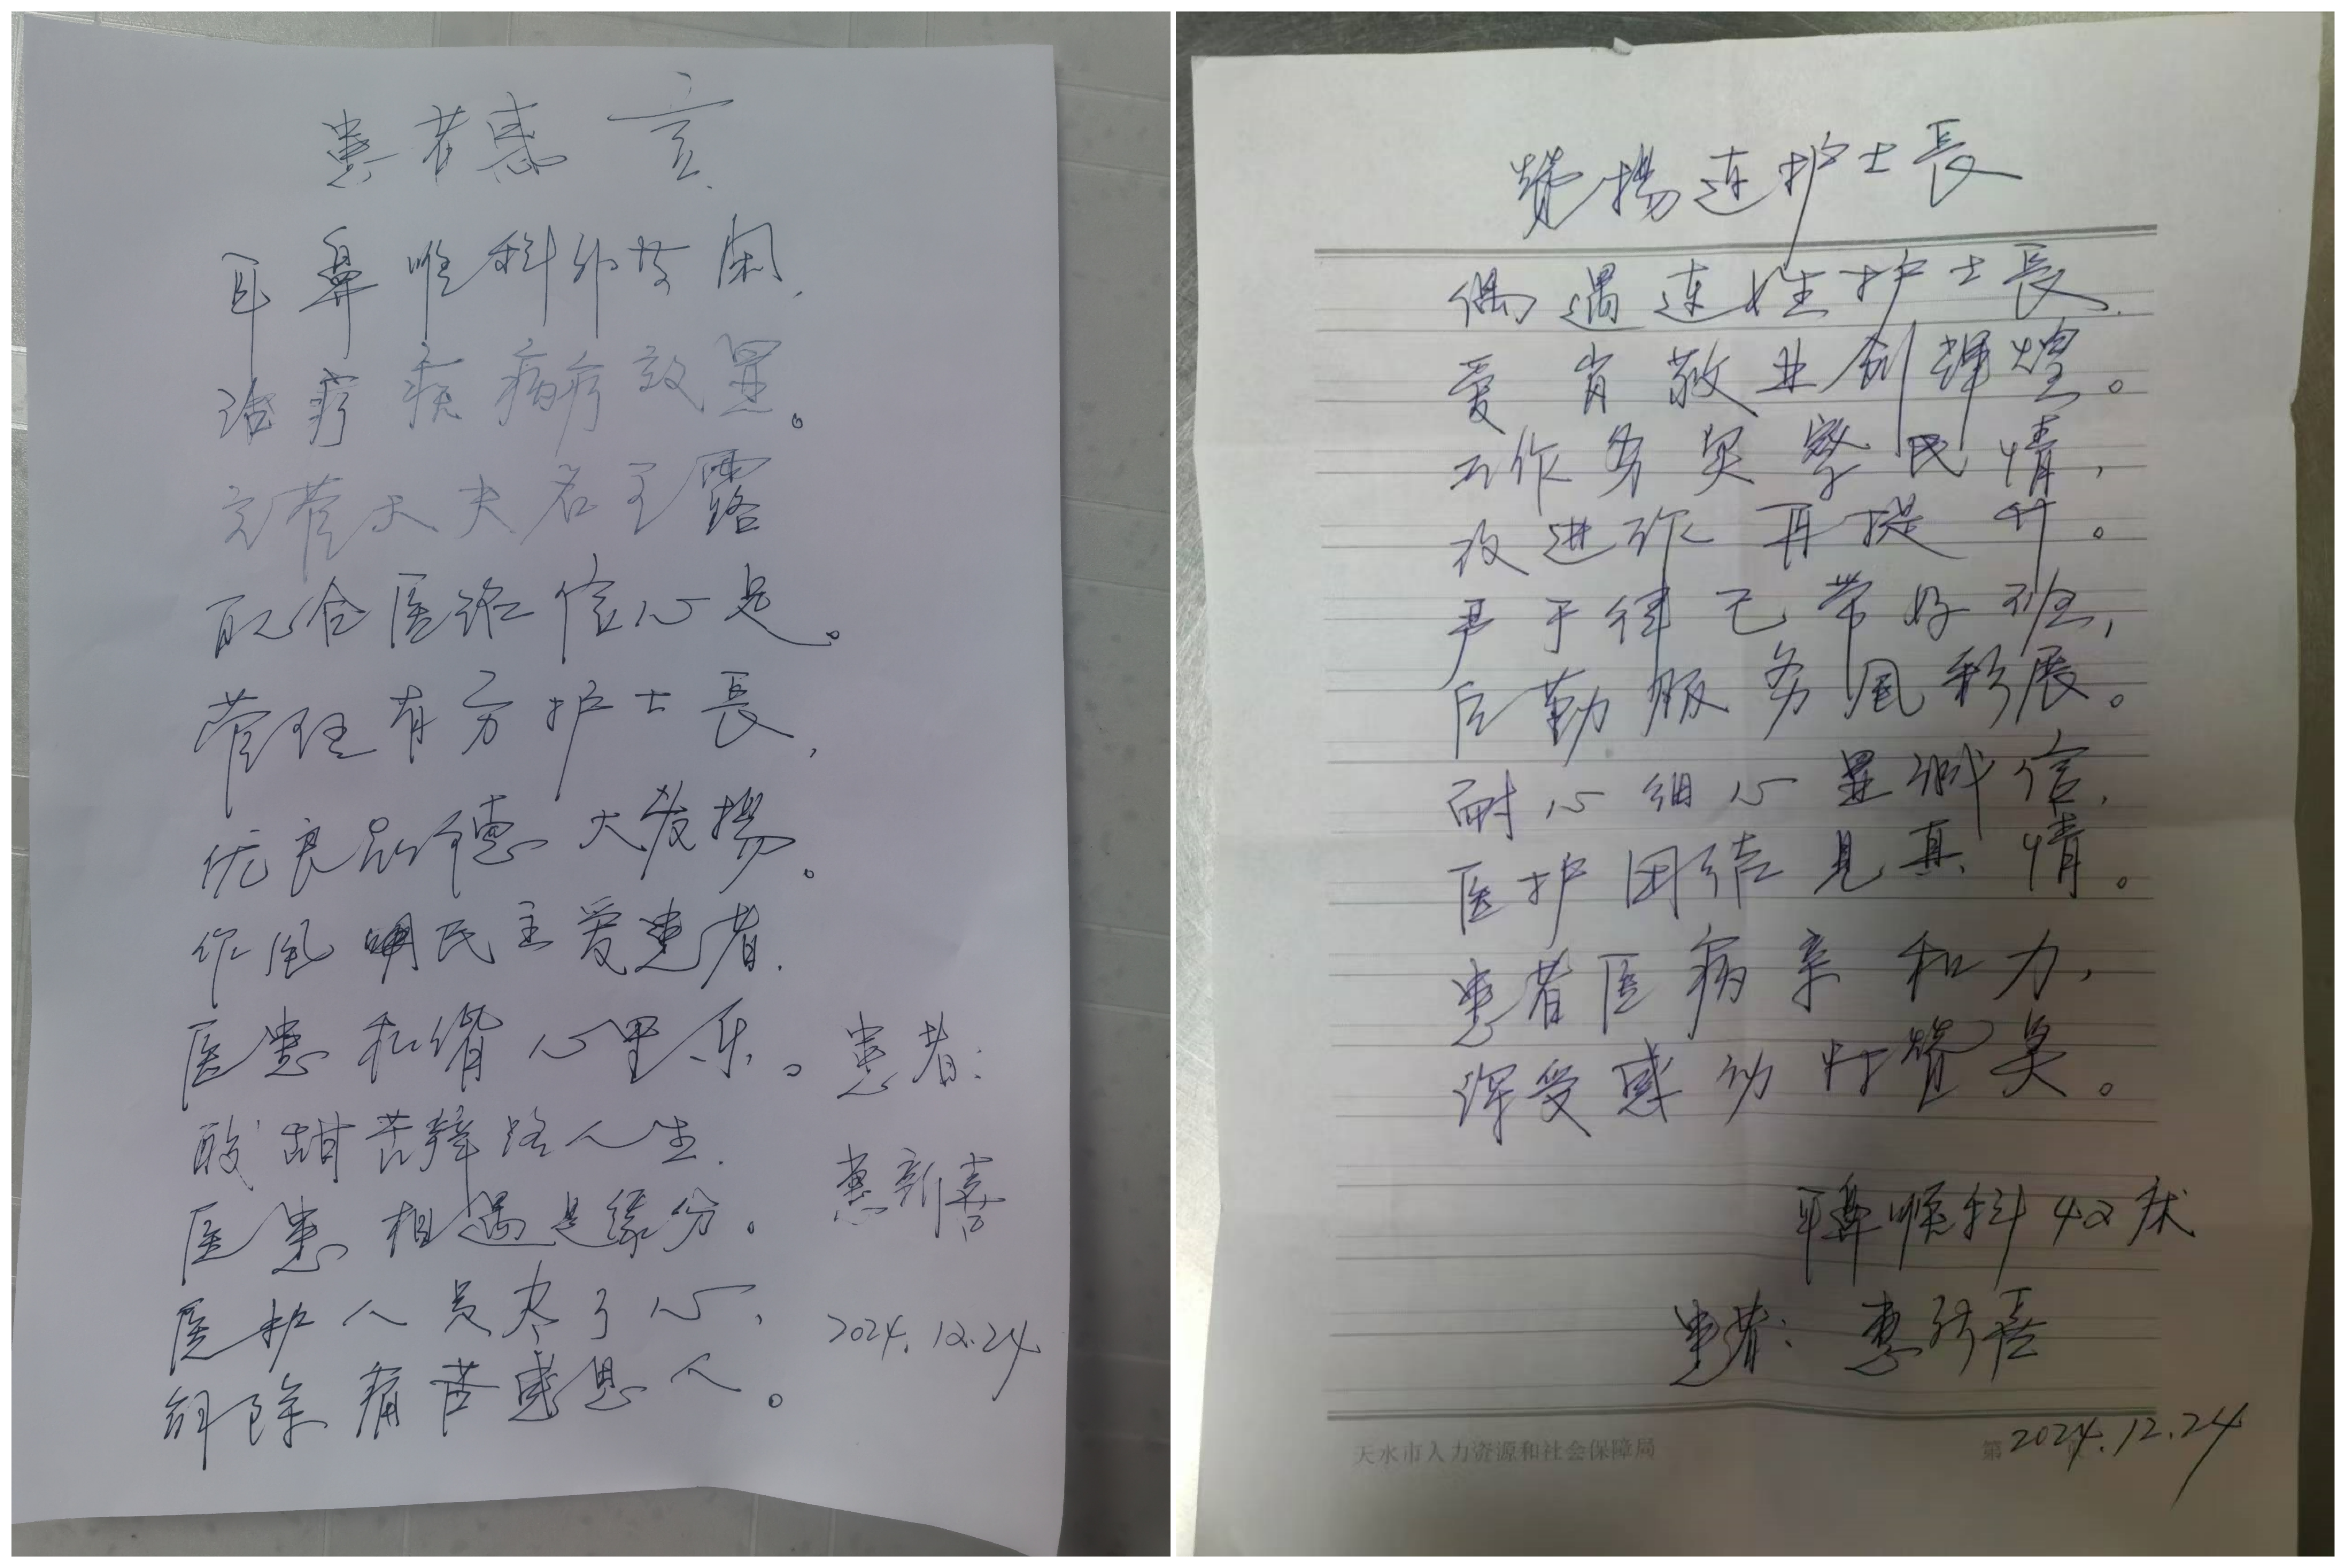 患者感言
耳鼻喉科
治疗疾病疗效显。
主管大夫名王露
配合医治信心足。
管理有方护士長,
优良品德大发揚。
作风明民主爱患者.
医患和谐心里乐。
酸甜苦辣路人生.
医患相遇是缘分。
医护人员尽了心,
解除痛苦感恩人。
患者:
惠新喜
2024.12.24
赞揚连护士長
偶遇连姓护士長.
爱岗敬业创辉煌。
工作务实察民情,
改进作再提升。
严于律己带好班,
后勤服务风彩展。
耐心细心显诚信,
医护团结见真情。
患者医病亲和力,
深受感动村赞美。
耳鼻喉科42床
患者:惠新喜
天水市人力资源和社会保障局
第
2024.12.24